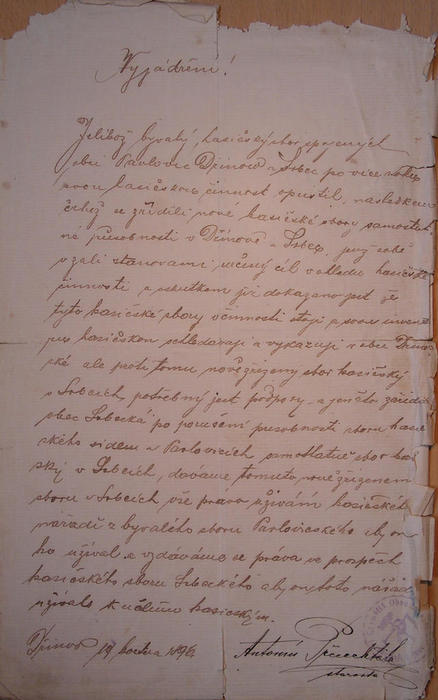 Vyjádření!
Jelikož byvalý, hasičský sbor spojených
obcí Pavlovic Dřínov a Srbec po více
svou hasičskou činnost opustil, následkem
čehož se zřídili nové hasičské sbory samostat
né působnosti v Dřínově a Srbcy, jenž sobě
vzali stanovami určený cíl v ohledu hasičské
činnosti a skutkem již dokazano jest že
tyto hasičské sbory v činnosti stojí a svou
hasičskou a vykazují v obci Dřinov
ské ale proti tomu novězřízený sbor hasičský
v Srbcích, potřebný jest podpory, a jenžto zřídila
obec Srbecká po porušení pusobnosti sboru hasič
ského sídlem v Pavlovicích samostatné sbor hasič
ský v Srbcích, dáváme tomuto nově zřízenému
sboru v Srbcích vše právo užívání hasičské
nářadí z byvalého sboru Pavlovicského aby on
ho užíval a vzdáváme se práva ve prospěch
hasičského sboru Srbeckého aby on toto nářadí
užíval k účelům hasičským.
Dřínov 19 května 1896
Antonín
starosta